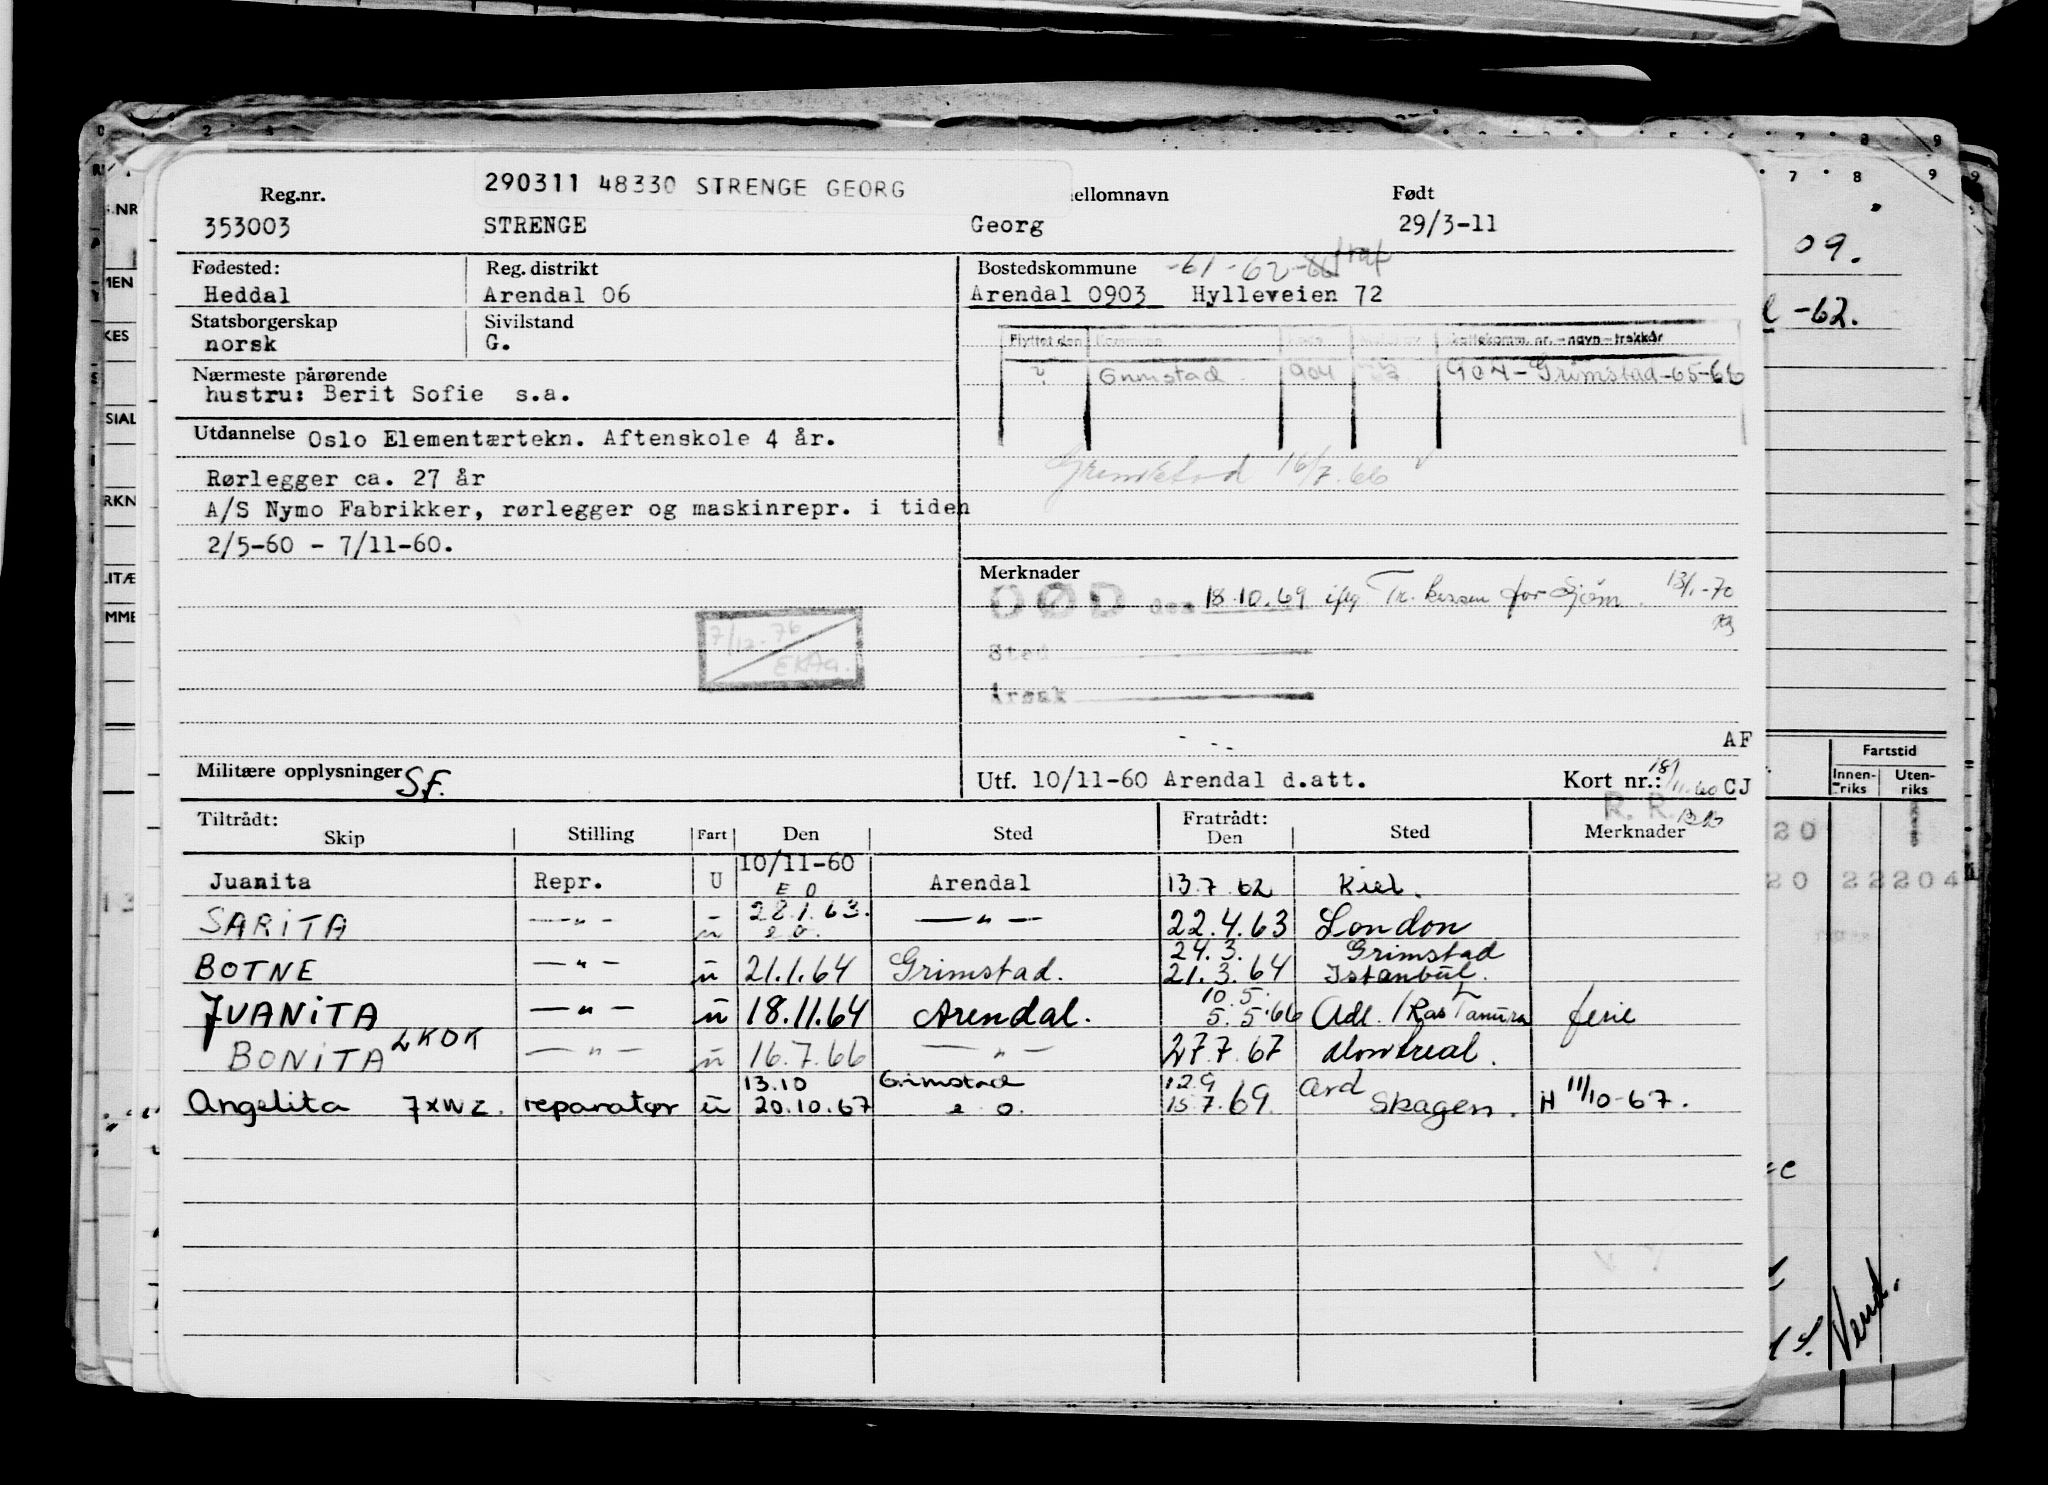 290311 48330 STRENGE GEORG
Reg.nr. ellomnavn Født
353003 STRENGE Georg 29/3-11
Fødested: Reg. distrikt Bostedskommune -61-62-66
Heddal Arendal 06 Arendal 0903 Hylleveien 72
Statsborgerskap Sivilstand
norsk G.
Flyttet den Kommune nr. - navn - trekkår
? Grimstad 904 904-Grimstad-65-66
Nærmeste pårørende
hustru: Berit Sofie s.a.
Utdannelse Oslo Elementærtekn. Aftenskole 4 år.
Rørlegger ca. 27 år
Grimstad 16/7.66
A/S Nymo Fabrikker, rørlegger og maskinrepr. i tiden
2/5-60 - 7/11-60.
Merknader
DØD den 18.10.69 iflg Tr. kassen for Sjøm. 13/1-70
Sted
Årsak
7/12-76
EKAa.
AF
Militære opplysninger S.F.
Utf. 10/11-60 Arendal d.att. Kort nr.: 18/11.60 CJ
R. R.
Tiltrådt: Fratrådt:
Skip Stilling Fart Den Sted Den Sted Merknader
Juanita Repr. U 10/11-60 Arendal 13.7.62 Kiel.
E O
SARITA —"— - 28.1.63. —"— 22.4.63 London
u e o.
24.3. Grimstad
BOTNE —"— u 21.1.64 Grimstad. 21.3.64 Istanbul.
10.5.
JUANITA —"— u 18.11.64 Arendal. 5.5.66 Adl. / Ras Tanura ferie
BONITA LKDK —"— u 16.7.66 —"— 27.7.67 Montreal.
13.10 Grimstad 12.9 Ard
Angelita 7XWZ. reparatør u 20.10.67 e o. 15.7.69. Skagen. H 11/10-67.
7 8 9
09.
-62.
Fartstid
Innen-riks Uten-riks
20
20 22204
Vend.